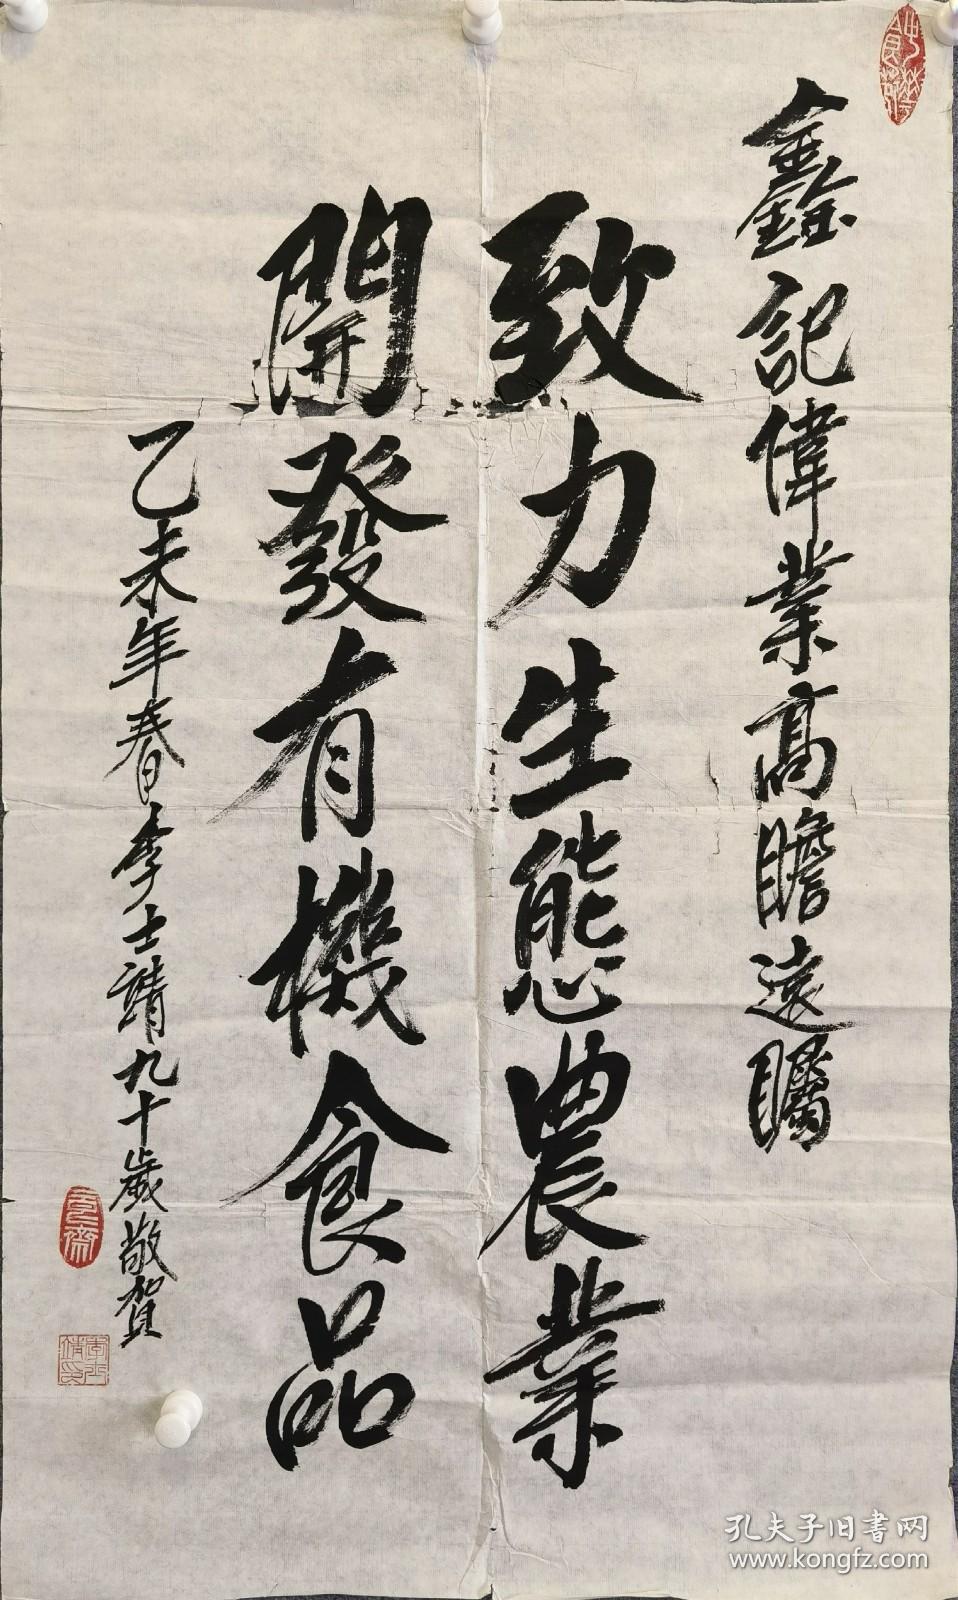 鑫記偉業高瞻遠矚
致力生態農業
開發有機食品
乙未年春李士靖九十歲敬賀
孔夫子旧書网
www.kongfz.com